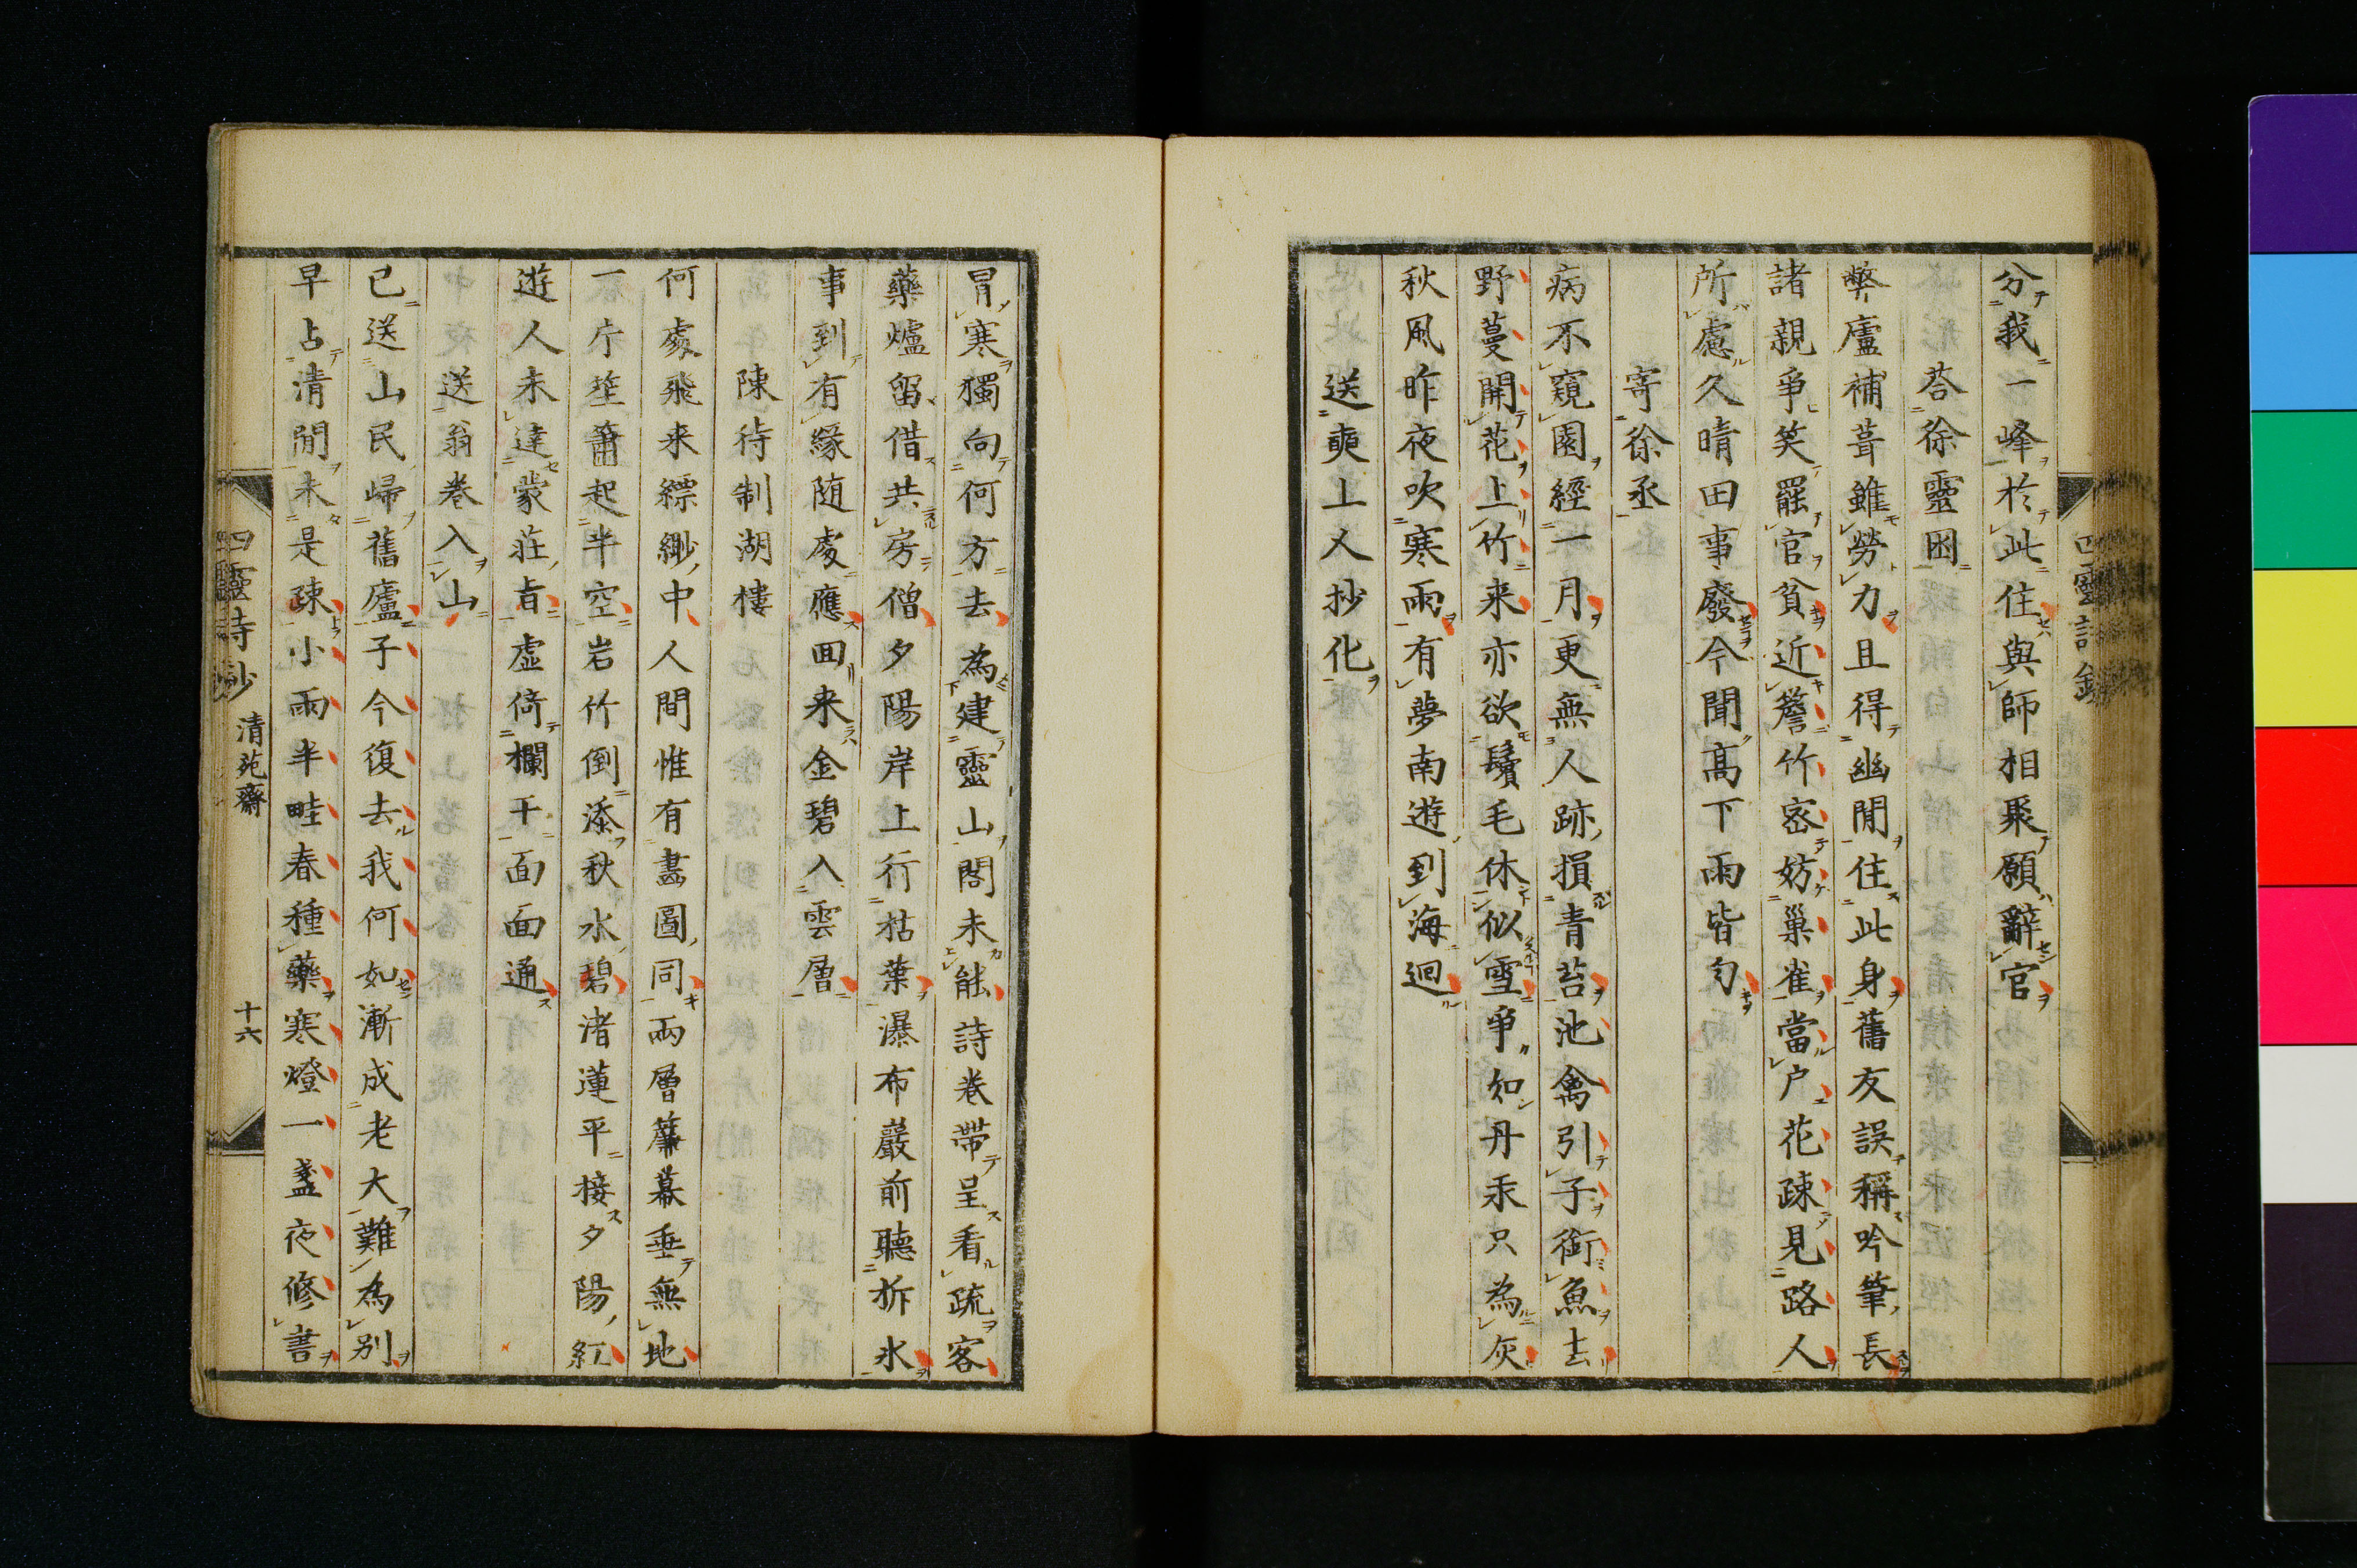 分我一峰於此住與師相聚願辭官
荅徐靈困
弊廬補葺雖勞力且得幽閒住此身舊友誤稱吟筆長
諸親爭笑罷官貧近簷竹密妨巢雀當户花疎見路人
所慮久晴田事廢今聞髙下雨皆匀
寄徐丞
病不窺園經一月更無人跡損青苔池禽引子銜魚去
野蔓開花上竹来亦欲鬚毛休似雪爭知丹汞只為灰
秋風昨夜吹寒雨有夢南遊到海迴
送奭上人抄化
冐寒獨向何方去為建靈山閣未能詩巻帶呈看疏客
藥爐留借共房僧夕陽岸上行枯葉瀑布巖前聽拆氷
事到有緣随處應囬来金碧入雲層
陳待制湖樓
何處飛来縹緲中人間惟有畵圖同兩層簾幕垂無地
一片笙簫起半空岩竹倒添秋水碧渚蓮平接夕陽紅
遊人未達蒙莊旨虛倚欄干面面通
送翁巻入山
已送山民歸舊廬子今復去我何如漸成老大難為别
早占清閒未是疎小雨半畦春種藥寒燈一盞夜修書
四靈詩鈔　清苑齋　十六